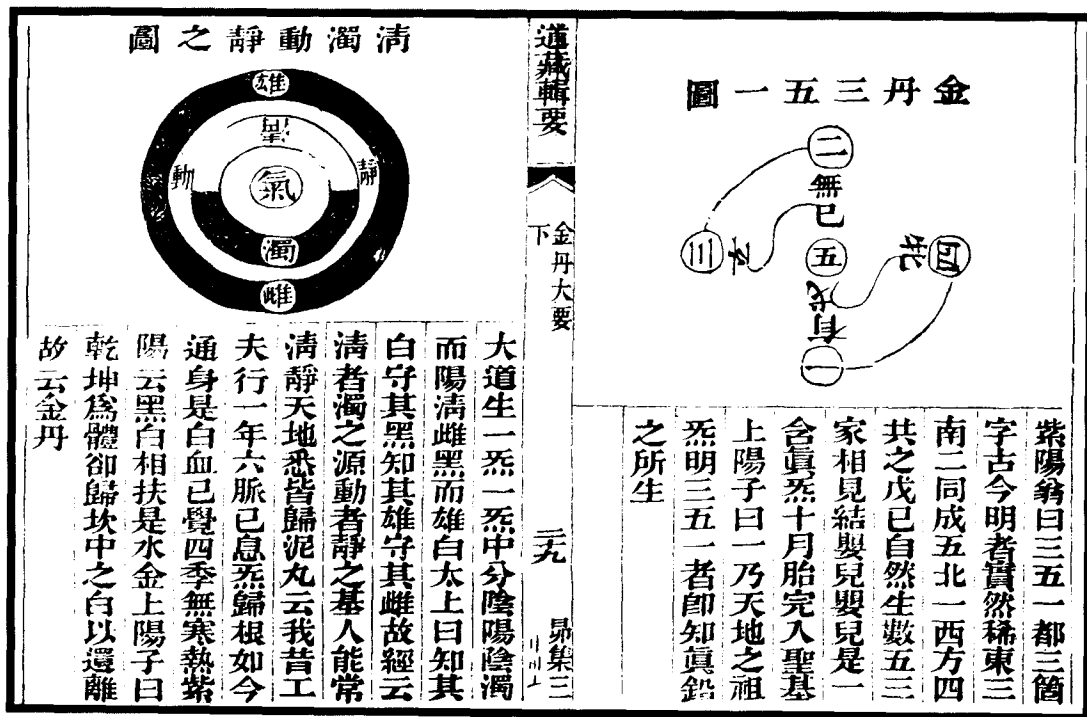 金丹三五一圖
二
無
己
三
五
四
戊
有
一
紫陽翁曰三五一都三箇
字古今明者實然稀東三
南二同成五北一西方四
共之戊己自然生數五三
家相見結嬰兒嬰兒是一
含眞炁十月胎完入聖基
上陽子曰一乃天地之祖
炁明三五一者卽知眞鉛
之所生
道藏輯要
金丹大要
下
三九
昴集三
清濁動靜之圖
雄
動
氣
靜
濁
雌
大道生一炁一炁中分陰陽陰濁
而陽清雌黑而雄白太上曰知其
白守其黑知其雄守其雌故經云
清者濁之源動者靜之基人能常
清靜天地悉皆歸泥丸云我昔工
夫行一年六脈已息炁歸根如今
通身是白血已覺四季無寒熱紫
陽云黑白相扶是水金上陽子曰
乾坤爲體卻歸坎中之白以還離
故云金丹